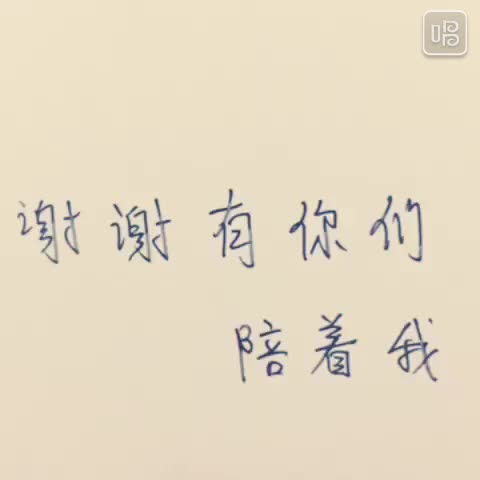 唱吧
谢谢有你们
陪着我